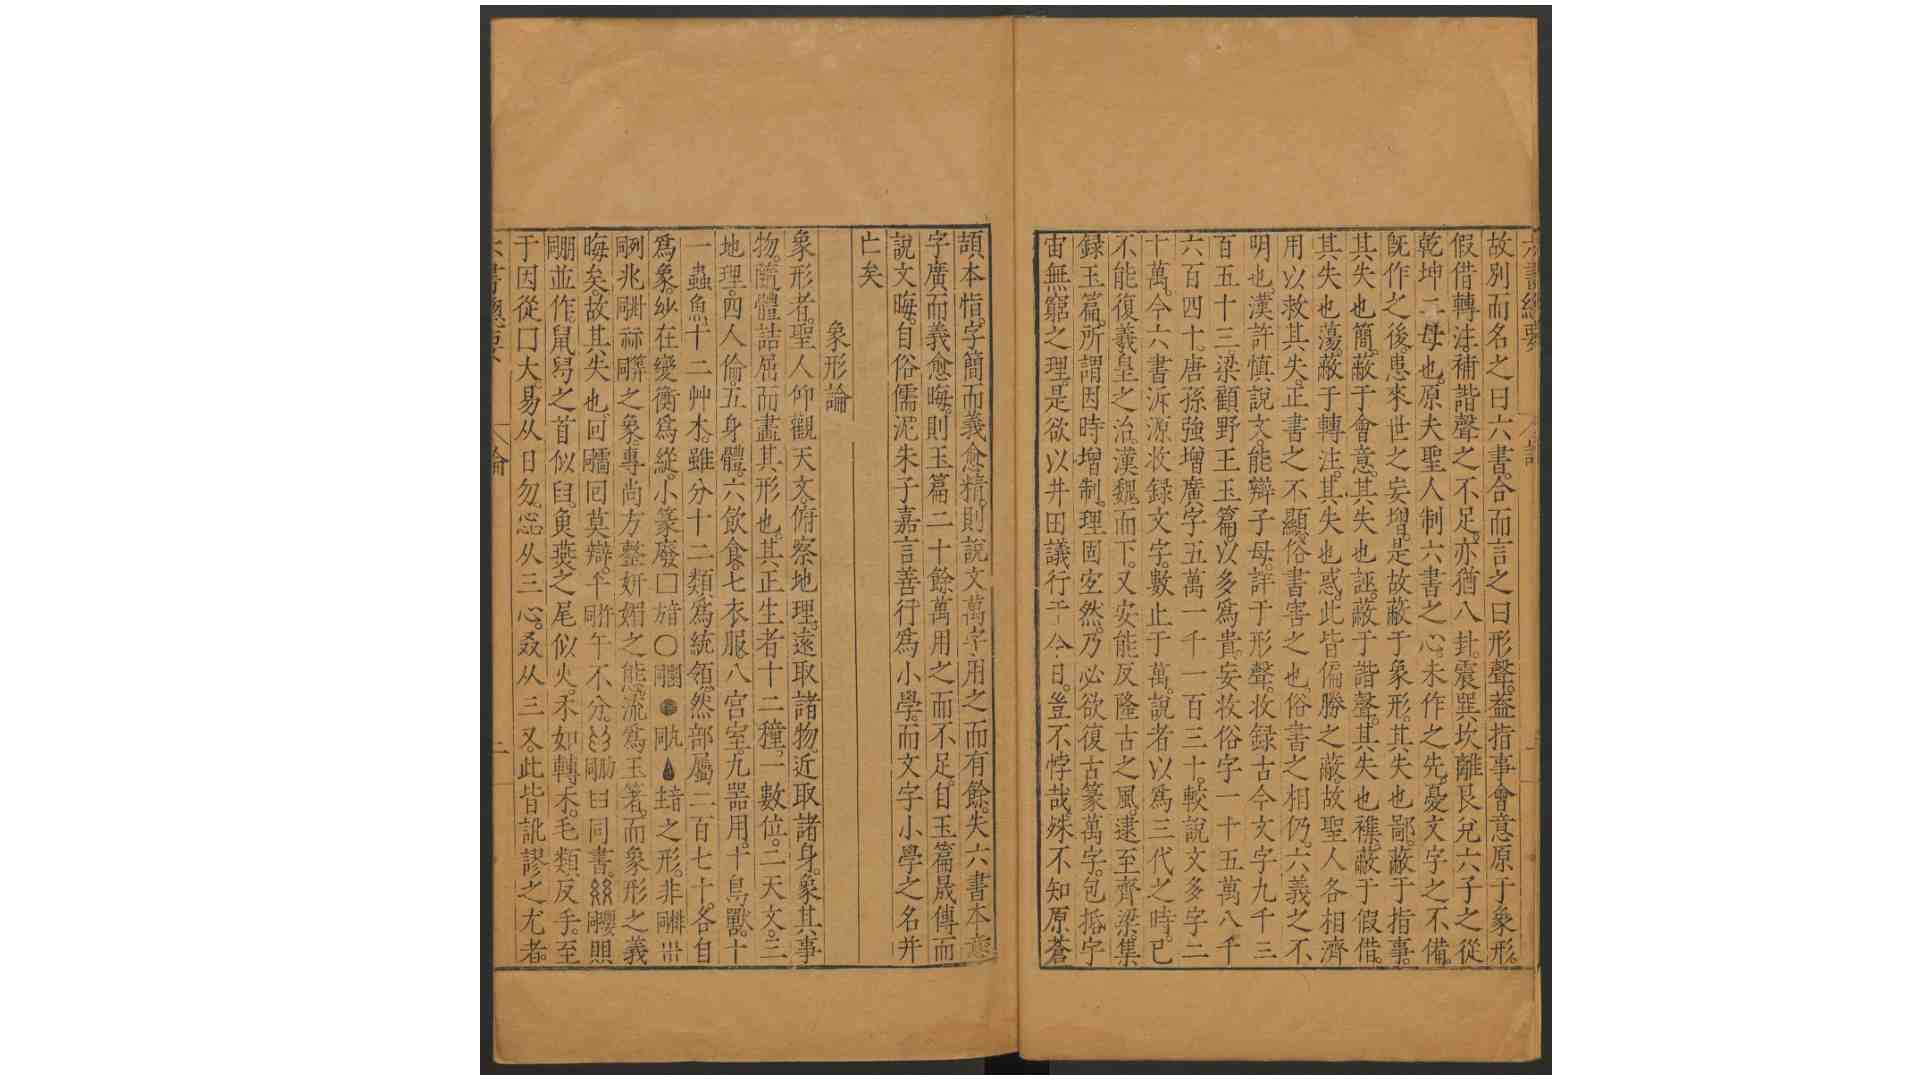 六書總要
故別而名之曰六書。合而言之曰形聲。葢指事會意原于象形。
假借轉注。補諧聲之不足。亦猶八卦。震巽坎離艮兌六子之從
乾坤二母也。原夫聖人制六書之心。未作之先。憂文字之不備。
旣作之後。患來世之妄增。是故蔽于象形。其失也鄙。蔽于指事。
其失也簡。蔽于會意。其失也誣。蔽于諧聲。其失也襍。蔽于假借。
其失也蕩。蔽于轉注。其失也惑。此皆偏勝之蔽。故聖人各相濟
用以救其失。正書之不顯。俗書害之也。俗書之相仍。六義之不
明也。漢許慎說文。能辯子母。詳于形聲。收録古今文字九千三
百五十三。梁顧野王玉篇。以多爲貴。妄收俗字一十五萬八千
六百四十。唐孫強增廣。字五萬一千一百三十。較說文多字二
十萬。今六書泝源收録文字。數止于萬。說者以爲三代之時。已
不能復羲皇之治。漢魏而下。又安能反隆古之風。逮至齊梁集
録玉篇。所謂因時增制。理固宐然。乃必欲復古篆萬字。包括字
宙無窮之理。是欲以井田議行于今日。豈不悖哉。殊不知原蒼
頡本恉。字簡而義愈精。則說文萬字用之而有餘。失六書本意
字廣而義愈晦。則玉篇二十餘萬用之而不足。自玉篇晟傳而
說文晦。自俗儒泥朱子嘉言善行爲小學。而文字小學之名幷
亡矣
象形論
象形者。聖人仰觀天文。俯察地理。遠取諸物。近取諸身。象其事
物。隨體詰屈而畫其形也。其正生者十二種。一數位。二天文。三
地理。四人倫。五身體。六飲食。七衣服。八宮室。九器用。十鳥獸。十
一蟲魚。十二艸木。雖分十二類爲統領。然部屬二百七十。各自
爲象。紗在變衡爲縱。小篆廢囗 〇 之形。非
兆 之象。專尚方整姸媚之態。流爲玉箸。而象形之義
晦矣。故其失也。回 囘莫辯。 午不分。 曰同書。 照
並作。鼠舄之首似臼。魚燕之尾似火。禾如轉禾。毛類反手。至
于因從囗大。易从日勿。惢从三心。叒从三又。此皆訛謬之尤者。
六書總要 論 二